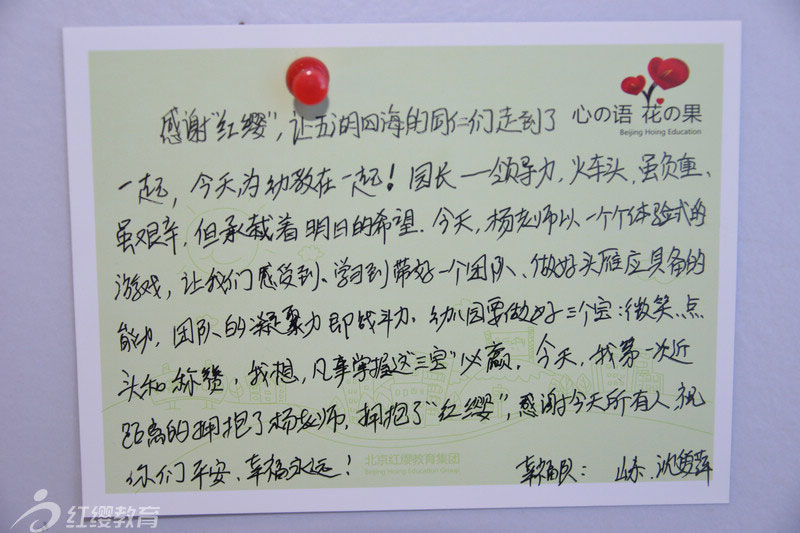 心の语 花の果
Beijing Hoing Education
感谢“红缨”,让五湖四海的同仁们走到了
一起,今天为幼教在一起!园长——领导力,火车头,虽负重、
虽艰辛,但承载着明日的希望.今天,杨老师以一个个体验式的
游戏,让我们感受到、学习到带好一个团队、做好头雁应具备的
能力,团队的凝聚力即战斗力.幼儿园要做好三个宝:微笑、点
头和称赞,我想,凡事掌握这“三宝”必赢.今天,我第一次近
距离的拥抱了杨老师,拥抱了“红缨”,感谢今天所有人,祝
你们平安、幸福永远!
幸福队: 山东、沈
北京红缨教育集团
Beijing Hoing Education Group
红缨教育